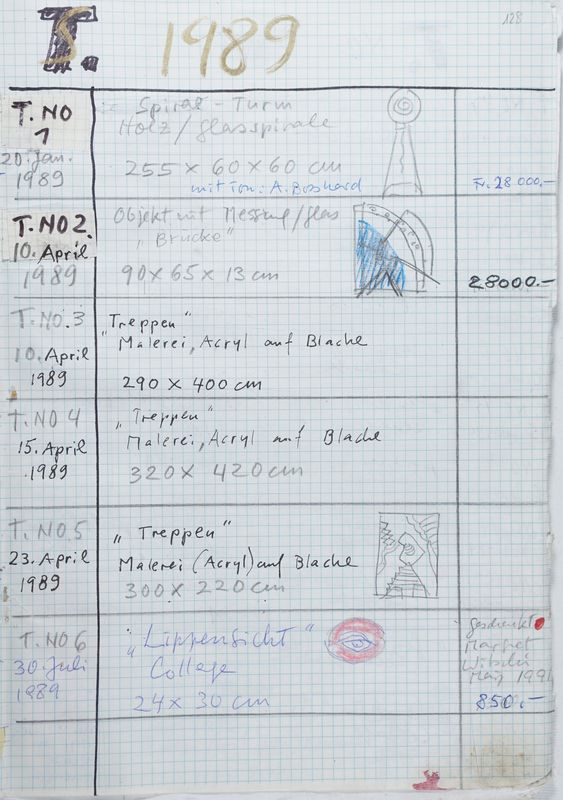 T. 1989
128
T. NO
1
20. Jan.
1989
Spiral-Turm
Holz/Glasspirale
255 x 60 x 60 cm
mit Ton: A. Bosshard
Fr. 28 000.-
T. NO 2.
10. April
1989
Objekt mit Messing/Glas
"Brücke"
90 x 65 x 13 cm
28000.-
T. NO. 3
10. April
1989
"Treppen"
Malerei, Acryl auf Blache
290 x 400 cm
T. NO 4
15. April
1989
"Treppen"
Malerei, Acryl auf Blache
320 x 420 cm
T. NO. 5
23. April
1989
"Treppen"
Malerei (Acryl) auf Blache
300 x 220 cm
T. NO 6
30. Juli
1989
"Lippensicht"
Collage
24 x 30 cm
geschenkt
Margret
März 1991
850.-